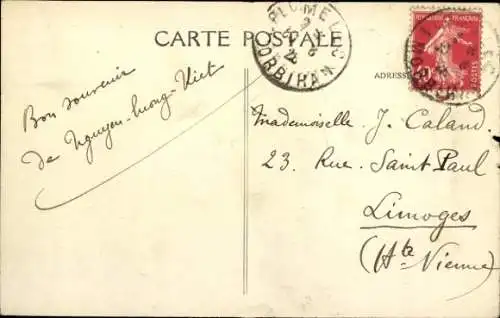 CARTE POSTALE
PLUMELEC
MORBIHAN
RÉPUBLIQUE FRANÇAISE
ADRESSE
Bon souvenir
de Nguyen-luong-Viet
Mademoiselle J. Caland
23. Rue Saint Paul
Limoges
(Hte Vienne)